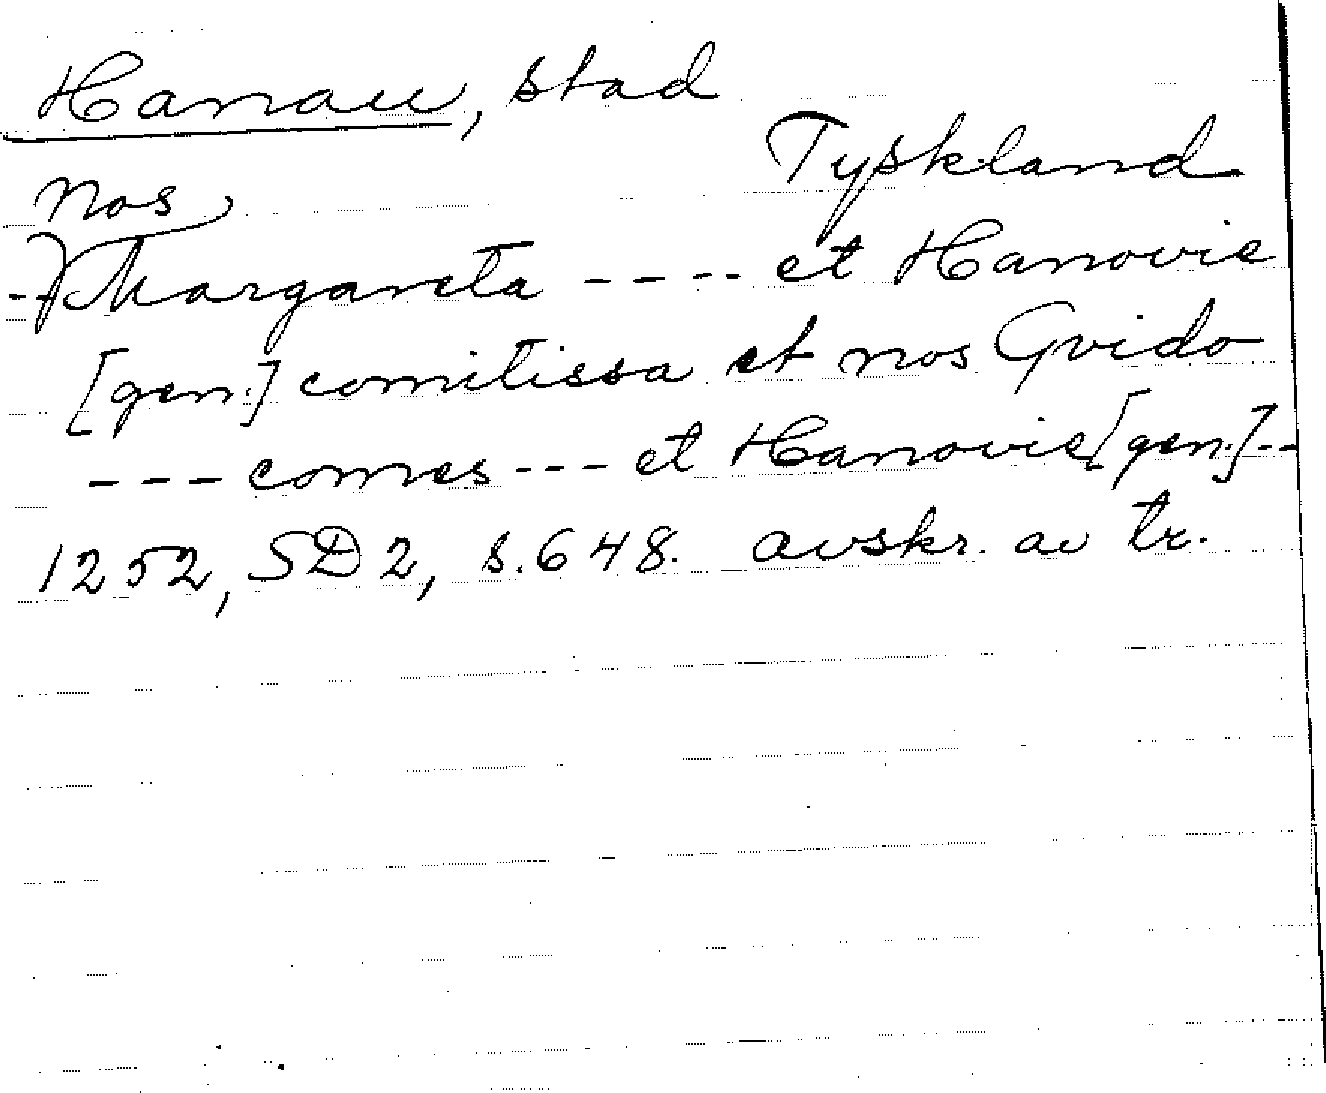 Hanau, stad
Tyskland
nos
-- Margareta ---- et Hanovie
[gen.] comitissa et nos Gvido
--- comes --- et Hanovie [gen.] --
1252, SD2, s. 648. avskr. av tr.